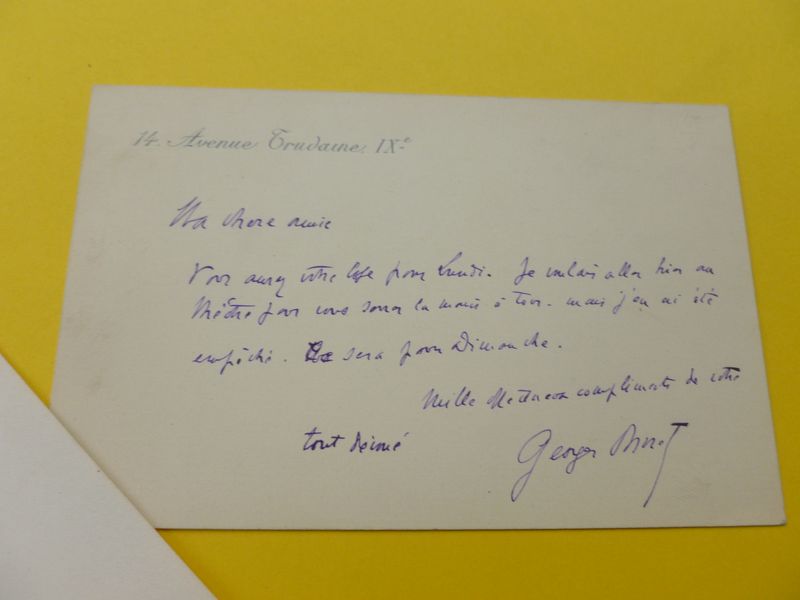 14. Avenue Trudaine. IXe
Ma chere amie
Vous aurez votre loge pour Lundi. Je voulais aller hier au
théâtre pour vous serrer la main à tous. mais j'en ai été
empêché. Ce sera pour Dimanche.
Mille affectueux compliments de votre
tout dévoué
Georges